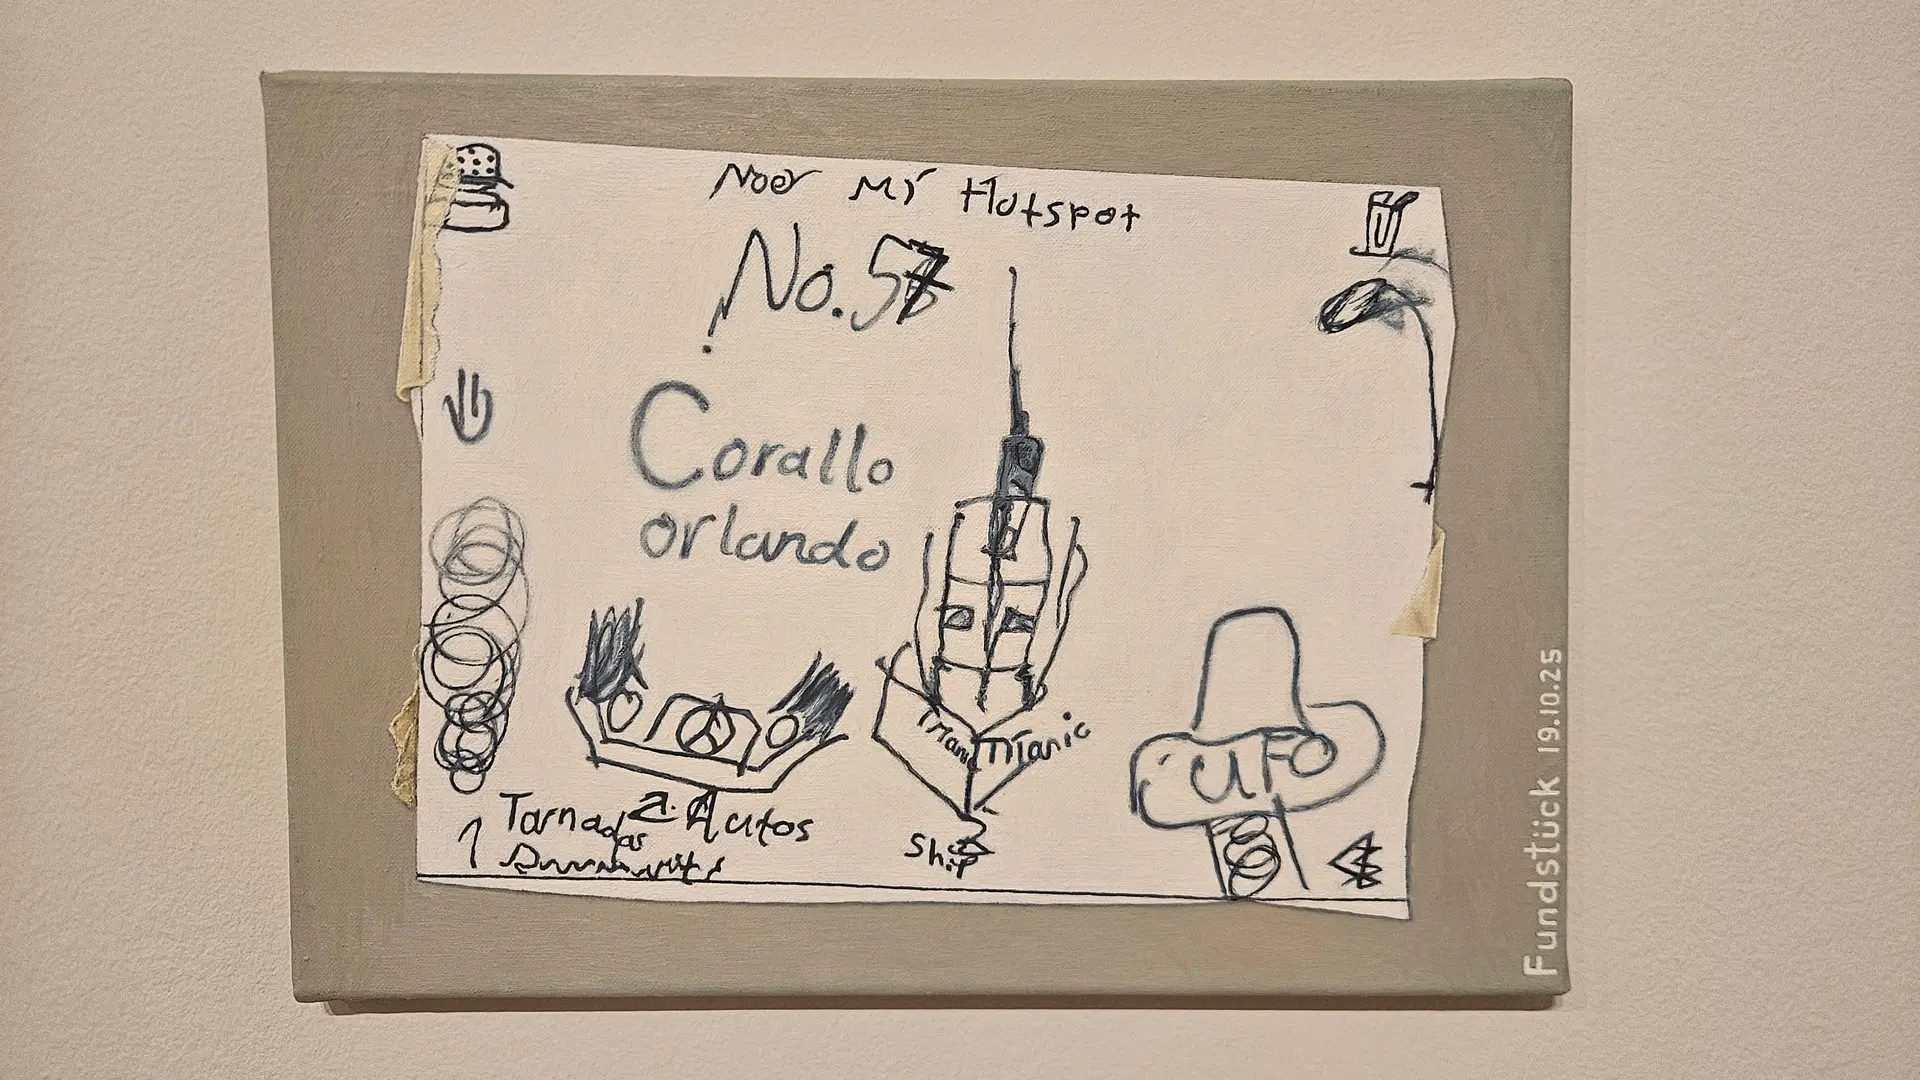 Noer Mi Hotspot
No. 57
Corallo
orlando
Titanic Titanic
UFO
Tornados 2. Autos
1
Ship
Fundstück 19.10.25